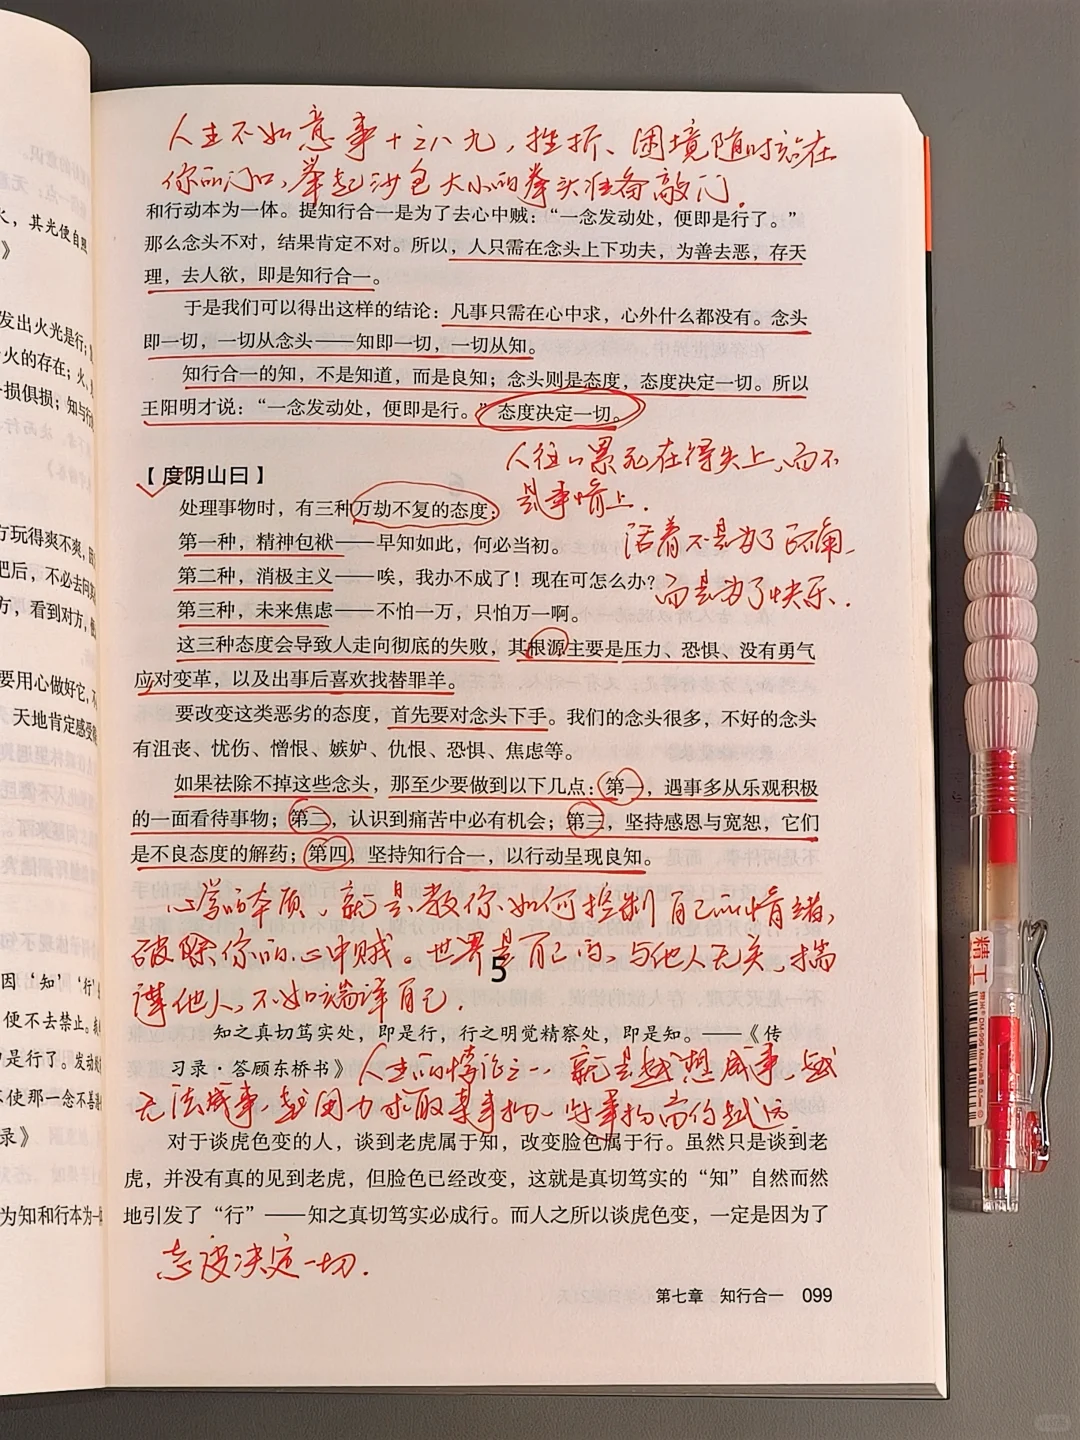 人生不如意事十之八九，挫折、困境随时站在
你的门口，举起沙包大小的拳头准备敲门.
和行动本为一体。提知行合一是为了去心中贼：“一念发动处，便即是行了。”
那么念头不对，结果肯定不对。所以，人只需在念头上下功夫，为善去恶，存天
理，去人欲，即是知行合一。
于是我们可以得出这样的结论：凡事只需在心中求，心外什么都没有。念头
即一切，一切从念头——知即一切，一切从知。
知行合一的知，不是知道，而是良知；念头则是态度，态度决定一切。所以
王阳明才说：“一念发动处，便即是行。”态度决定一切。
人往往累死在得失上，而不
是事情上.
【度阴山曰】
处理事物时，有三种万劫不复的态度：
活着不是为了正确，
第一种，精神包袱——早知如此，何必当初。
第二种，消极主义——唉，我办不成了！现在可怎么办？
而是为了快乐.
第三种，未来焦虑——不怕一万，只怕万一啊。
这三种态度会导致人走向彻底的失败，其根源主要是压力、恐惧、没有勇气
应对变革，以及出事后喜欢找替罪羊。
要改变这类恶劣的态度，首先要对念头下手。我们的念头很多，不好的念头
有沮丧、忧伤、憎恨、嫉妒、仇恨、恐惧、焦虑等。
如果祛除不掉这些念头，那至少要做到以下几点：第一，遇事多从乐观积极
的一面看待事物；第二，认识到痛苦中必有机会；第三，坚持感恩与宽恕，它们
是不良态度的解药；第四，坚持知行合一，以行动呈现良知。
心学的本质，就是教你如何控制自己的情绪，
破除你的心中贼。世界是自己的，与他人无关，揣
摩他人，不如端详自己.
5
知之真切笃实处，即是行，行之明觉精察处，即是知。——《传
习录·答顾东桥书》
人生的悖论之一，就是越想成事，越
无法成事，越用力求取某事物，此事物离你越远.
对于谈虎色变的人，谈到老虎属于知，改变脸色属于行。虽然只是谈到老
虎，并没有真的见到老虎，但脸色已经改变，这就是真切笃实的“知”自然而然
地引发了“行”——知之真切笃实必成行。而人之所以谈虎色变，一定是因为了
态度决定一切.
第七章 知行合一 099
火，其光便自照
》
发出火光是行；
火的存在；火、
损俱损；知与行
方玩得爽不爽，
把后，不必去问
方，看到对方，
要用心做好它，
天地肯定感受
因‘知’‘行’
便不去禁止。
是行了。发动
使那一念不善
录》
为知和行本为一体
精工